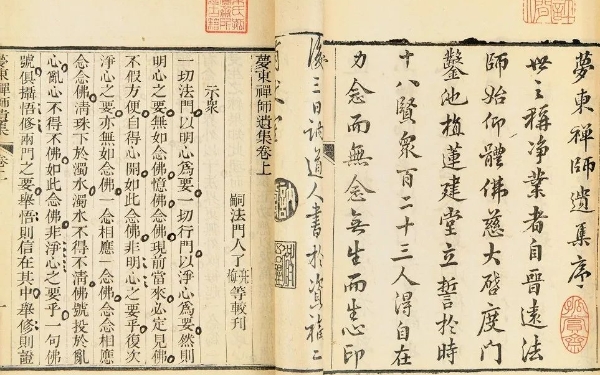 夢東禪師遺集序
世之稱淨業者自晉遠法
師始仰體佛慈大啓度門
鑿池植蓮建堂立誓於時
十八賢衆百二十三人得自在
力念而無念無生而生心印
後三日訥道人書於資福二
夢東禪師遺集卷上
嗣法門人了亮了梅等較刊
示衆
一切法門以明心爲要一切行門以淨心爲要然則
明心之要無如念佛憶佛念佛現前當來必定見佛
不假方便自得心開如此念佛非明心之要乎復次
淨心之要亦無如念佛一念相應一念佛念念相應
念念佛清珠下於濁水濁水不得不清佛號投於亂
心亂心不得不佛如此念佛非淨心之要乎一句佛
號俱攝悟修兩門之要舉悟則信在其中舉修則證
夢東禪師遺集 卷上 一